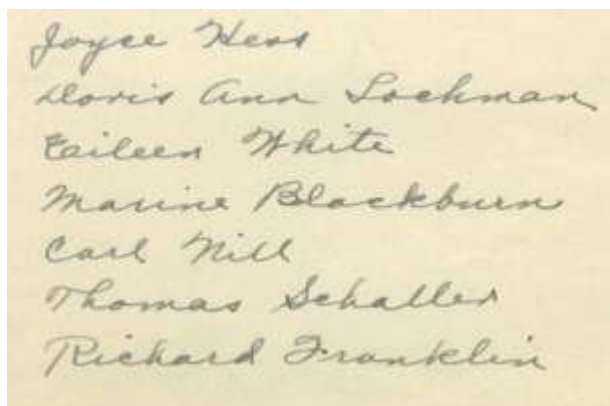 Joyce Hess
Doris Ann Lochman
Eileen White
Maxine Blackburn
Carl Nill
Thomas Schaller
Richard Franklin